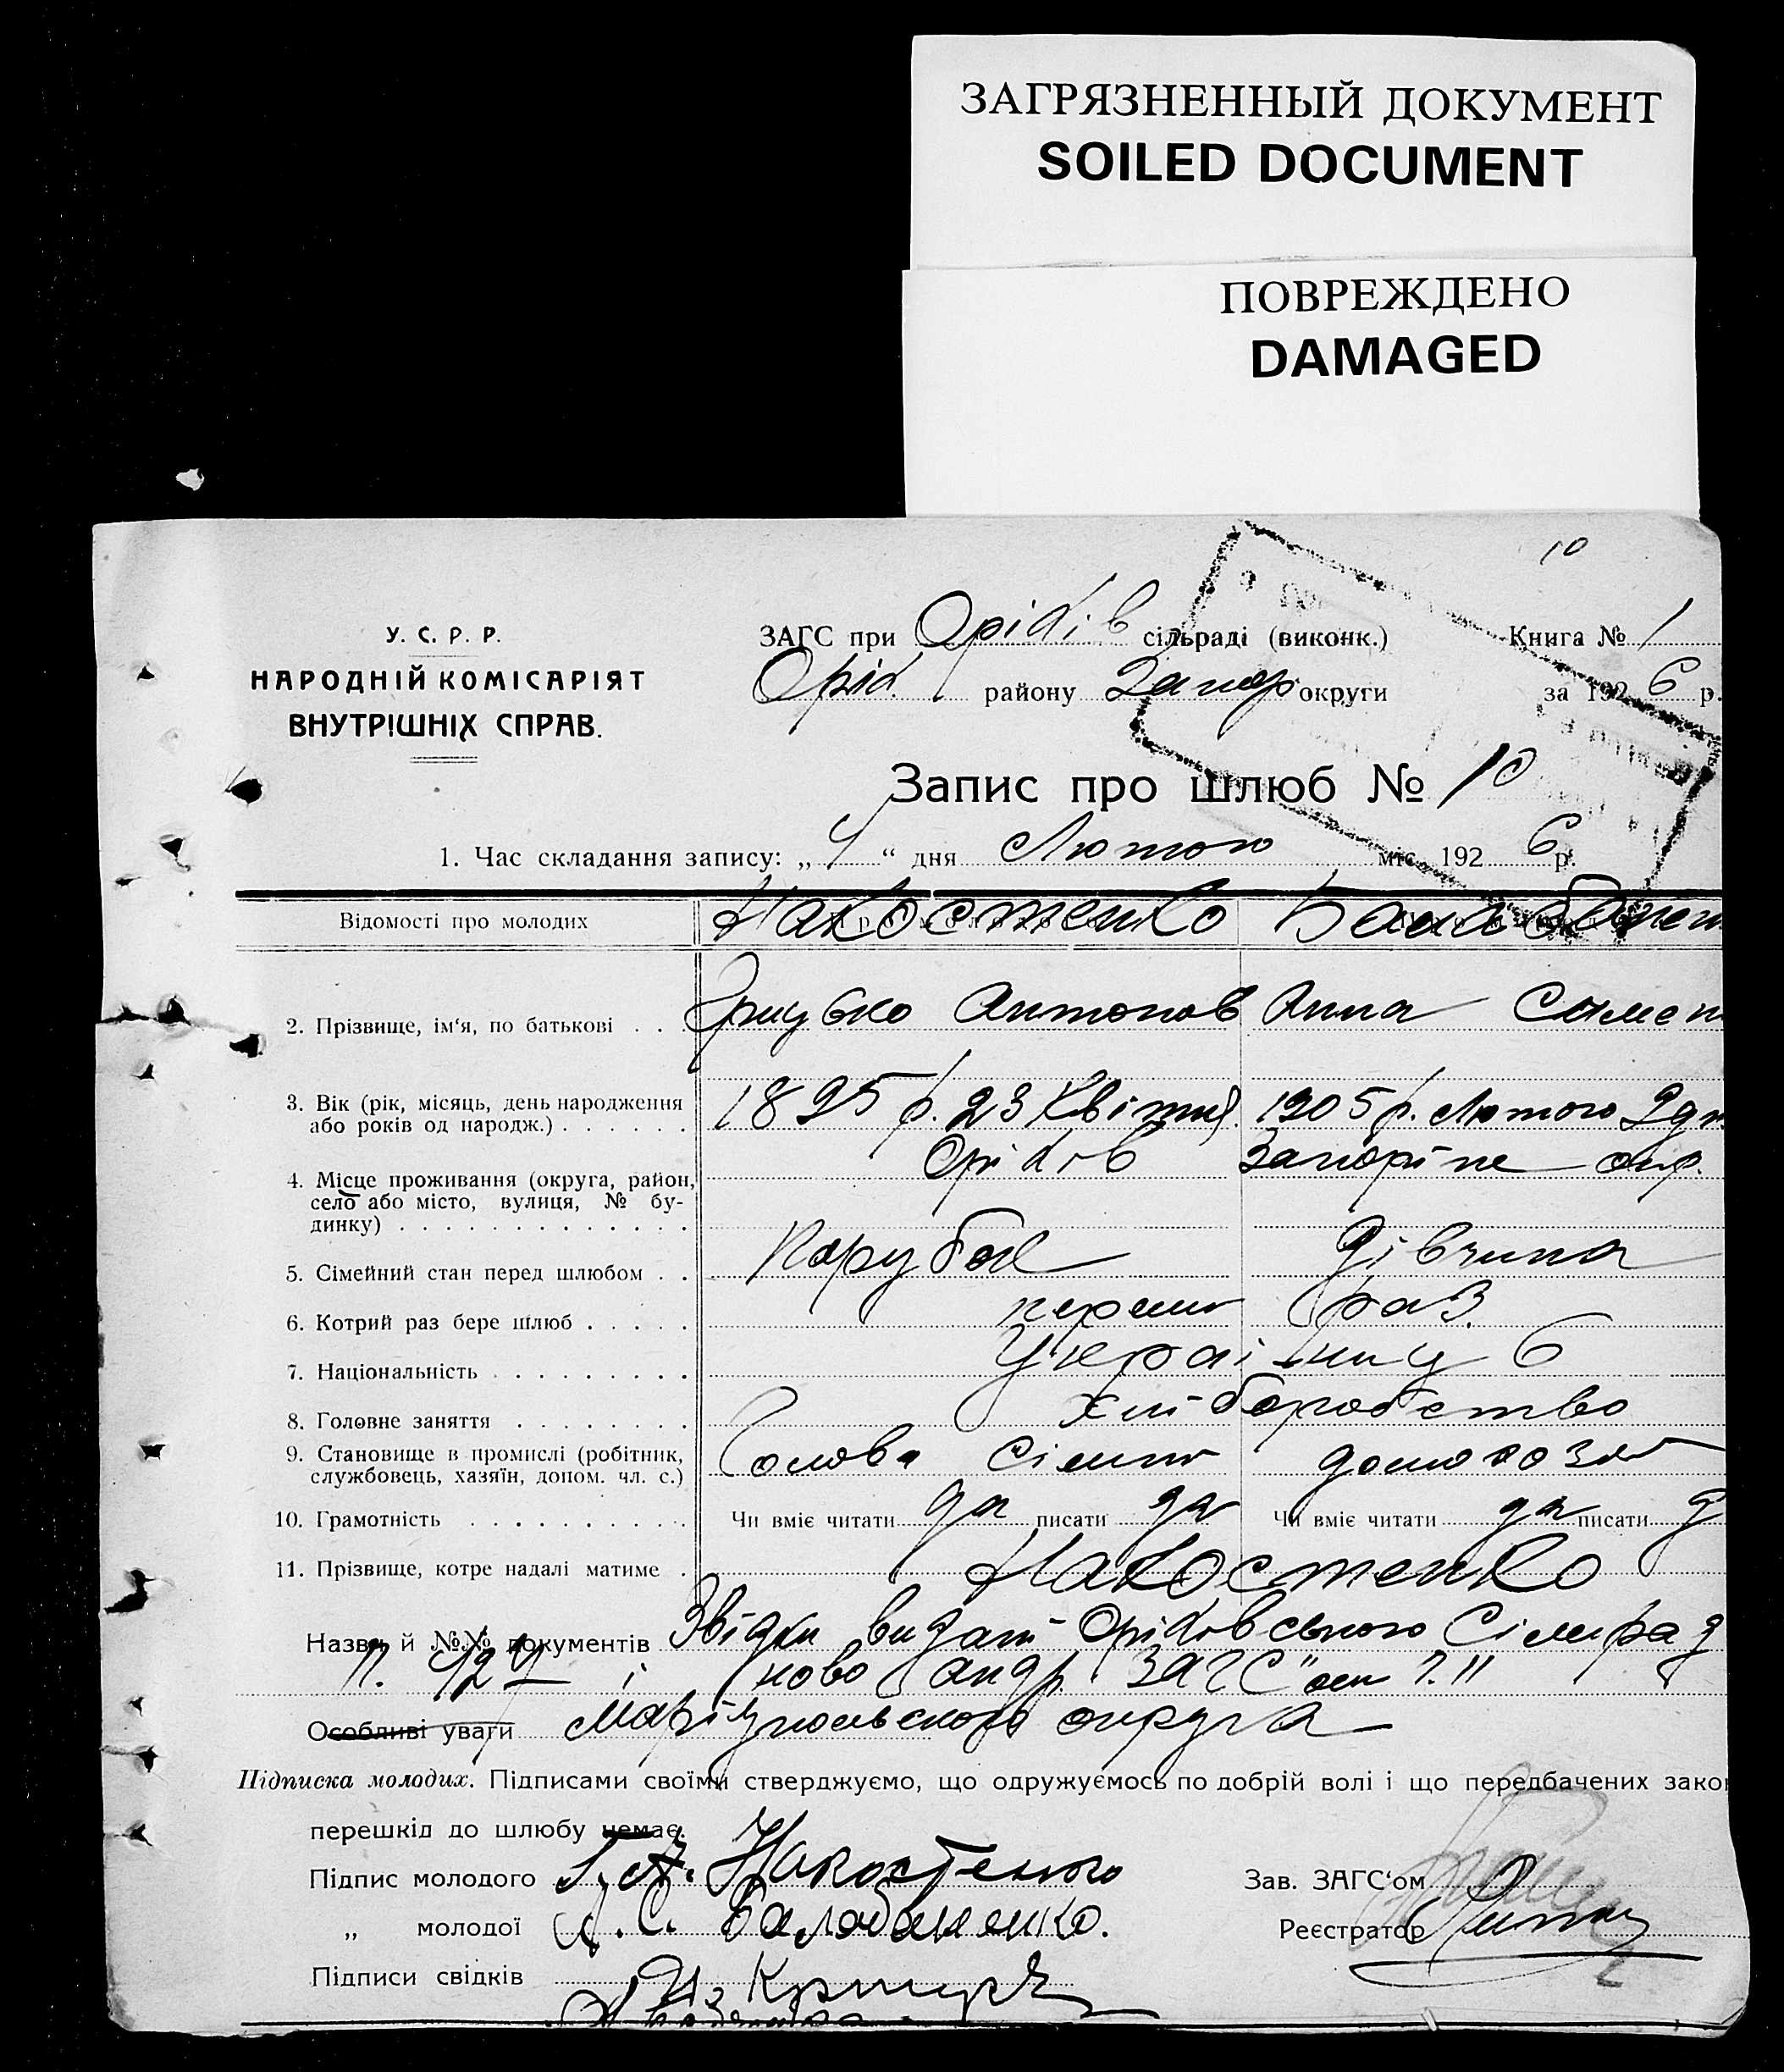 ЗАГРЯЗНЕННЫЙ ДОКУМЕНТ
SOILED DOCUMENT
ПОВРЕЖДЕНО
DAMAGED
10
У. С. Р. Р.
НАРОДНІЙ КОМІСАРІЯТ
ВНУТРІШНІХ СПРАВ.
ЗАГС при Оріхів сільраді (виконк.) Книга № 1
Оріх. району Запор округи за 1926 р.
Запис про шлюб № 10
1. Час складання запису: „4“ дня Лютого міс. 1926 р.
Відомості про молодих Накостенко
2. Прізвище, ім‘я, по батькові . . Грицько Антонов Анна Семен
3. Вік (рік, місяць, день народження 1895 р. 23 Квітня. 1905 р. Лютого
або років од народж.) . . . . . .
4. Місце проживання (округа, район, Оріхів Запоріже окр.
село або місто, вулиця, № бу-
динку) . . . . . . . . . . . . .
5. Сімейний стан перед шлюбом . . Парубок Дівчина
6. Котрий раз бере шлюб . . . . . перший раз.
7. Національність . . . . . . . . . Українців
8. Головне заняття . . . . . . . . хліборобство
9. Становище в промислі (робітник, Голова Сімї домохозя
службовець, хазяїн, допом. чл. с.)
10. Грамотність . . . . . . . . . . Чи вміє читати да писати да Чи вміє читати да писати д
11. Прізвище, котре надалі матиме . Накостенко
Назви й №№ документів Звідки видані Оріхівського Сільрад
і ново андр ЗАГС
Особливі уваги Маріупольского округа
Підписка молодих. Підписами своїми стверджуємо, що одружуємось по добрій волі і що передбачених зако
перешкід до шлюбу немає.
Підпис молодого Г. А. Накостенко Зав. ЗАГС‘ом
„ молодої А. С. Балабаненко. Реєстратор
Підписи свідків